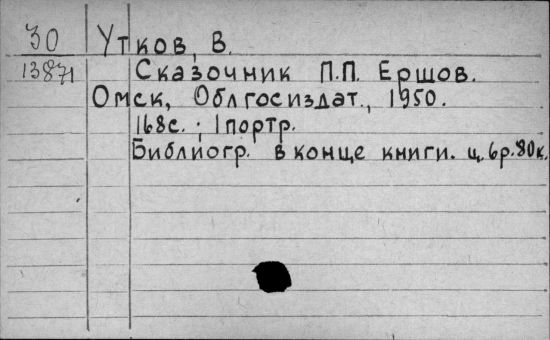 30 Утков, В.
13871 Сказочник П.П. Ершов.
Омск, Облгосиздат., 1950.
168с.; 1 портр.
Библиогр. в конце книги. ц. 6р.80к.